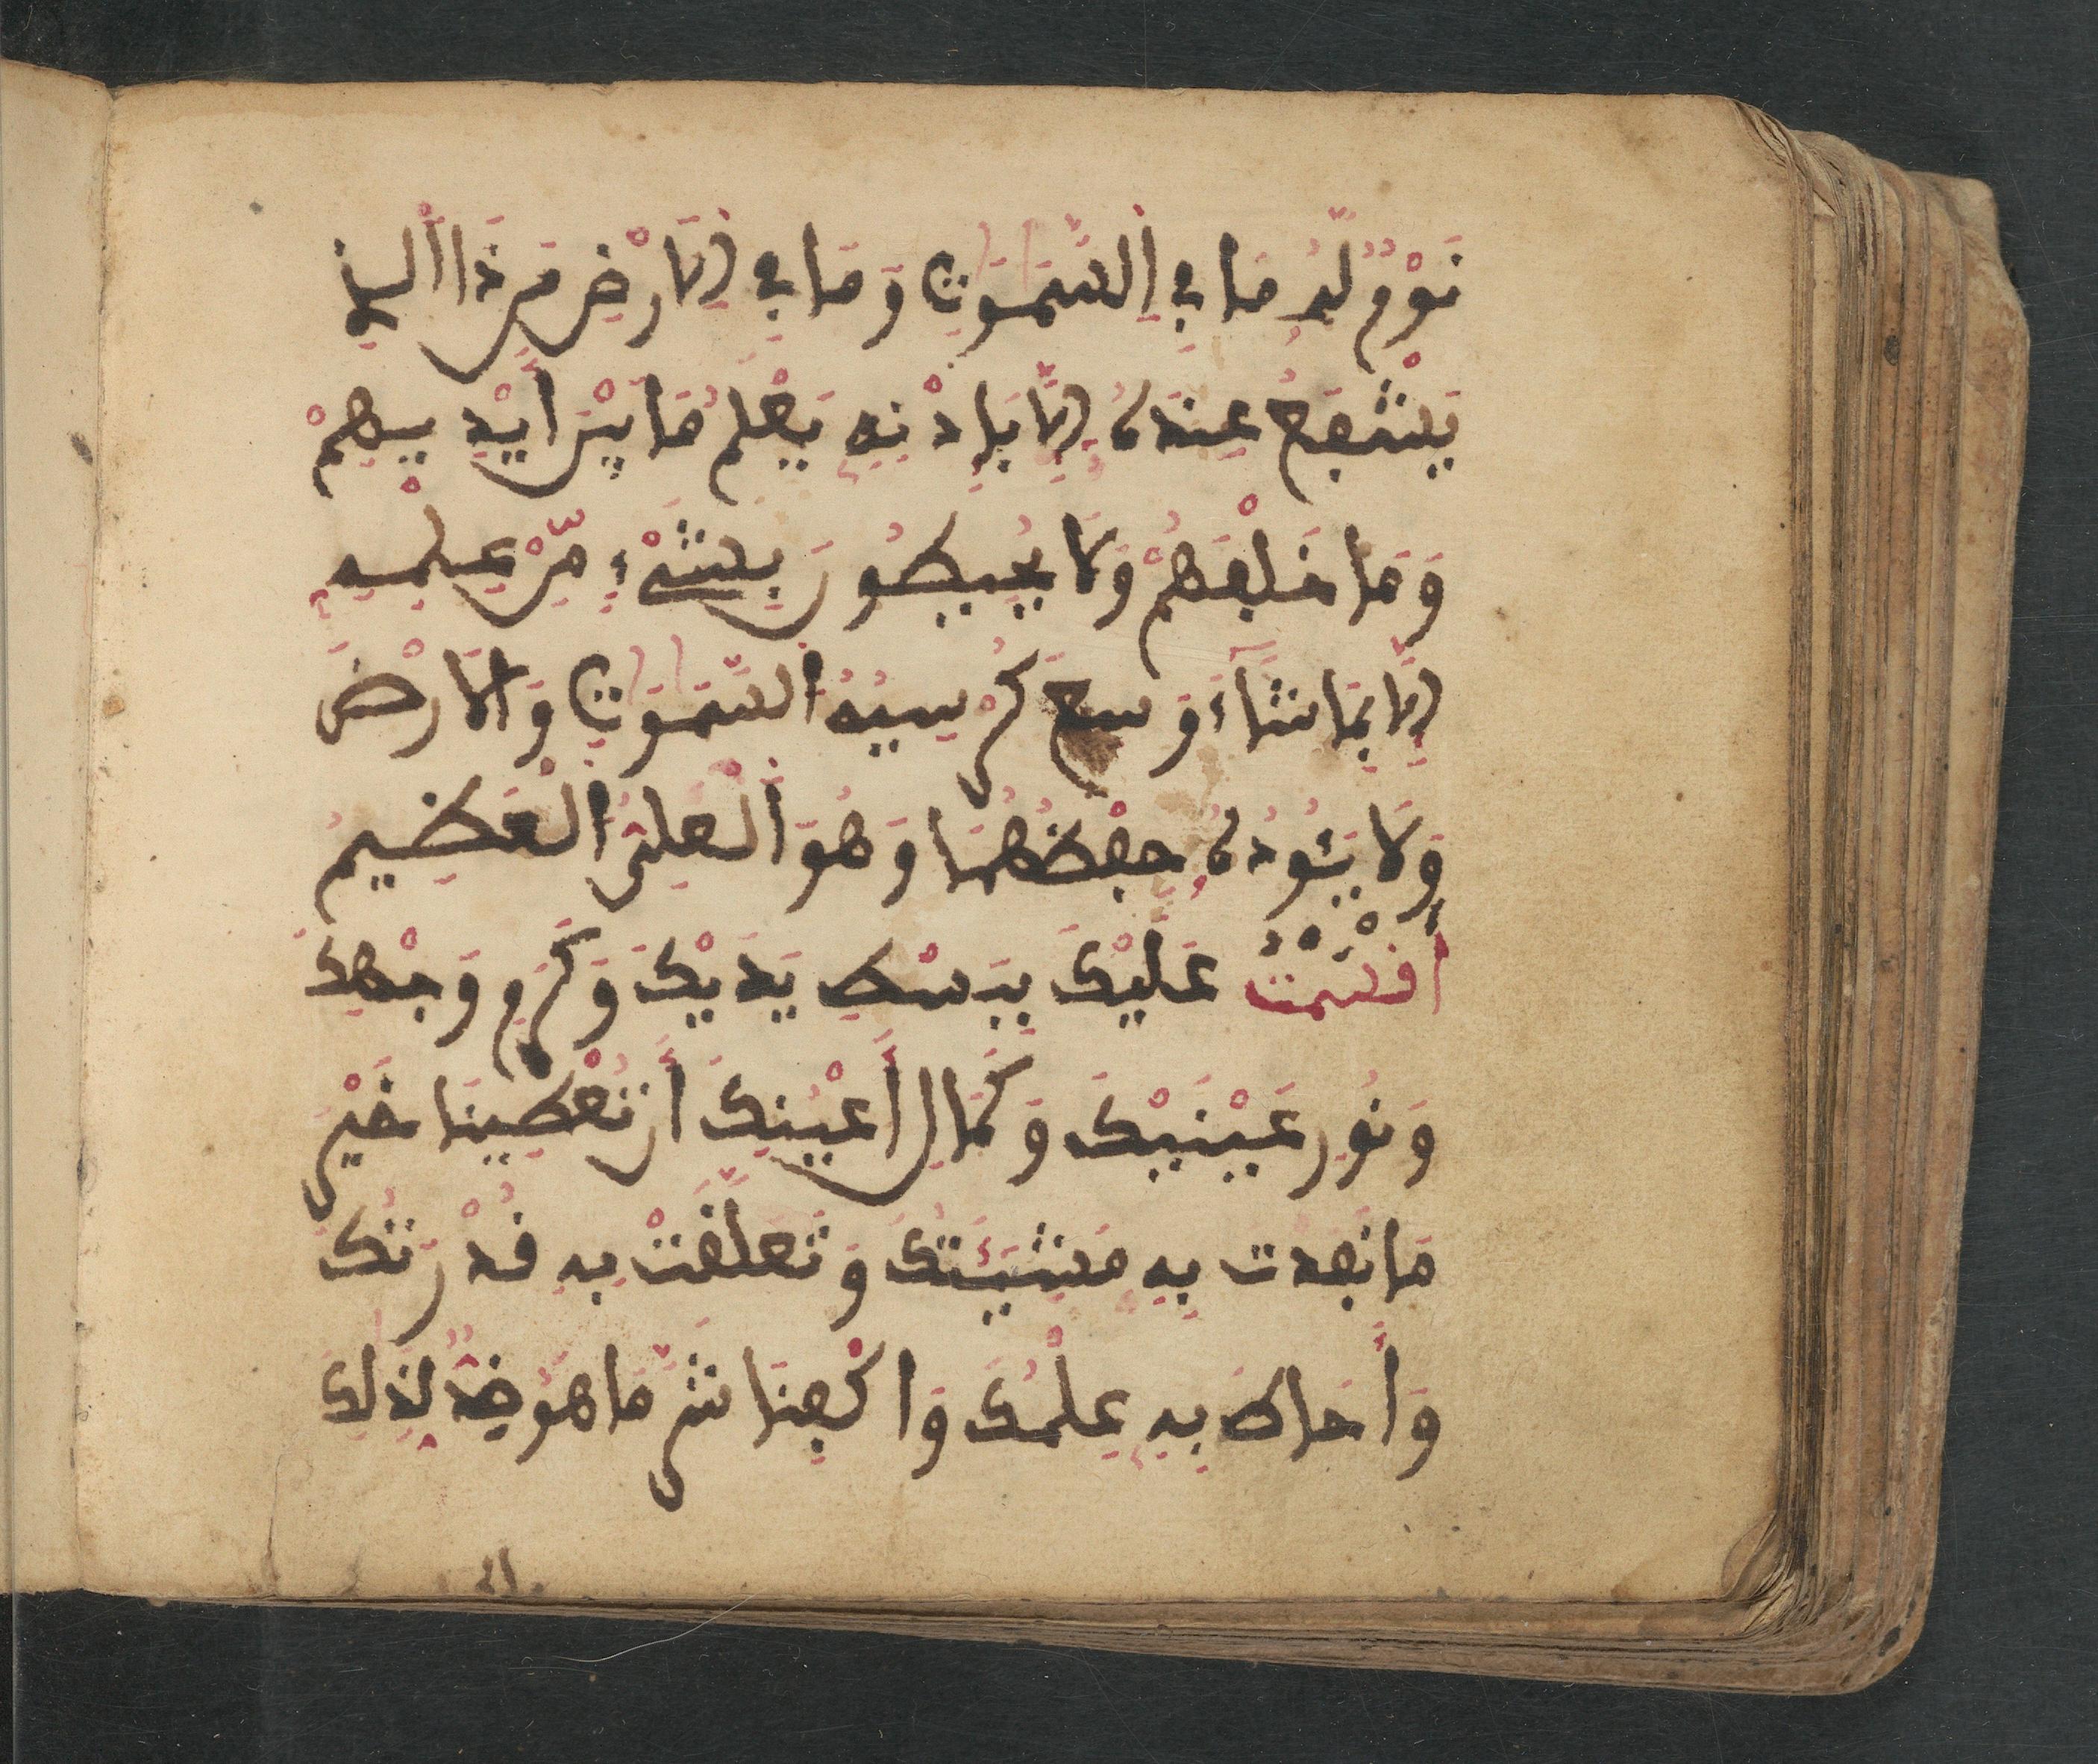 نَوْمٌ لَّهُ مَا فِي اِلسَّمَوَتِ وَمَا فِي اِلَارْضِ مَن ذَا اَلذِے
يَشْفَعُ عِندَهُ إِلَّا بِإِذْنِهِ يَعْلَمُ مَا بَيْنَ أَيْدِيهِمْ
وَمَا خَلْفَهُمْ وَلَا يُحِيطُونَ بِشَيْءٍ مِّنْ عِلْمِهِ
إِلَّا بِمَا شَآءَ وَسِعَ كُرْسِيُّهُ السَّمَوَتِ وَالَارْضَ
وَلَا يَـُٔودُهُ حِفْظُهُمَا وَهُوَ اَلْعَلِيُّ الْعَظِيمُ
أَقْسَمْتُ عَلَيْكَ بِبَسْطِ يَدَيْكَ وَكَرَمِ وَجْهِكَ
وَنُورِ عَيْنَيْكَ وَكَمَالِ أَعْيُنِكَ أَن تُعْطِيَنَا خَيْرَ
مَا نَفَذَت بِهِ مَشِيئَتُكَ وَتَعَلَّقَتْ بِهِ قُدْرَتُكَ
وَأَحَاطَ بِهِ عِلْمُكَ وَاكْفِنَا شَرَّ مَا هُوَ ضِدٌّ لِذَلِكَ